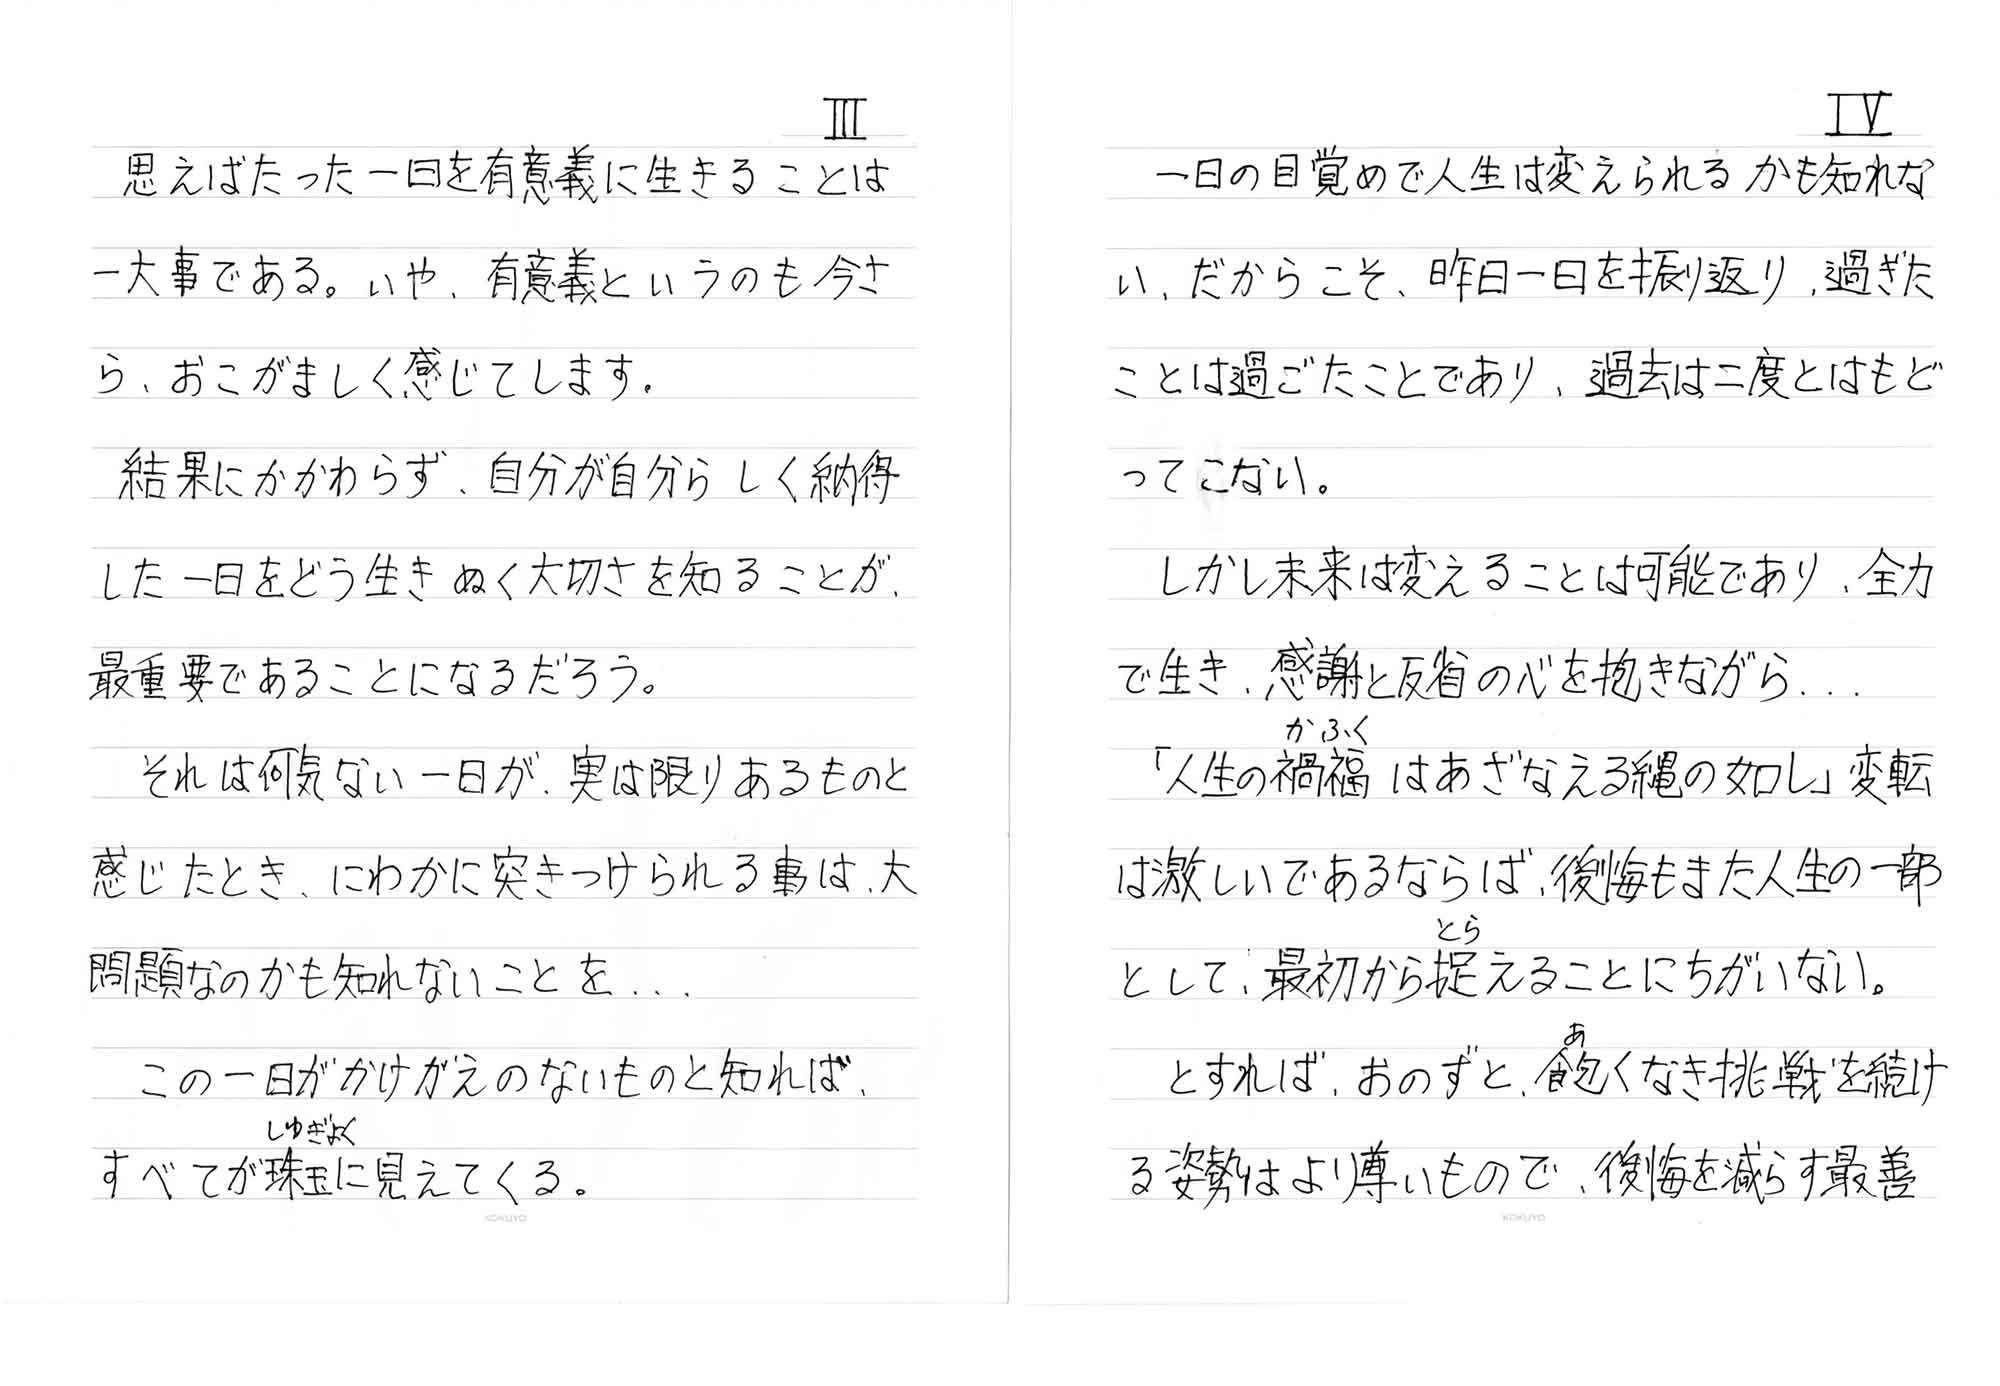 III
思えばたった一日を有意義に生きることは
一大事である。いや、有意義というのも今さ
ら、おこがましく感じてします。
結果にかかわらず、自分が自分らしく納得
した一日をどう生きぬく大切さを知ることが、
最重要であることになるだろう。
それは何気ない一日が、実は限りあるものと
感じたとき、にわかに突きつけられる事は、大
問題なのかも知れないことを...
この一日がかけがえのないものと知れば、
しゅぎょく
すべてが珠玉に見えてくる。
KOKUYO
IV
一日の目覚めで人生は変えられるかも知れな
い、だからこそ、昨日一日を振り返り、過ぎた
ことは過ごたことであり、過去は二度とはもど
ってこない。
しかし未来は変えることは可能であり、全力
で生き、感謝と反省の心を抱きながら...
かふく
「人生の禍福はあざなえる縄の如し」変転
は激しいであるならば、後悔もまた人生の一部
とら
として、最初から捉えることにちがいない。
あ
とすれば、おのずと、飽くなき挑戦を続け
る姿勢はより尊いもので、後悔を減らす最善
KOKUYO